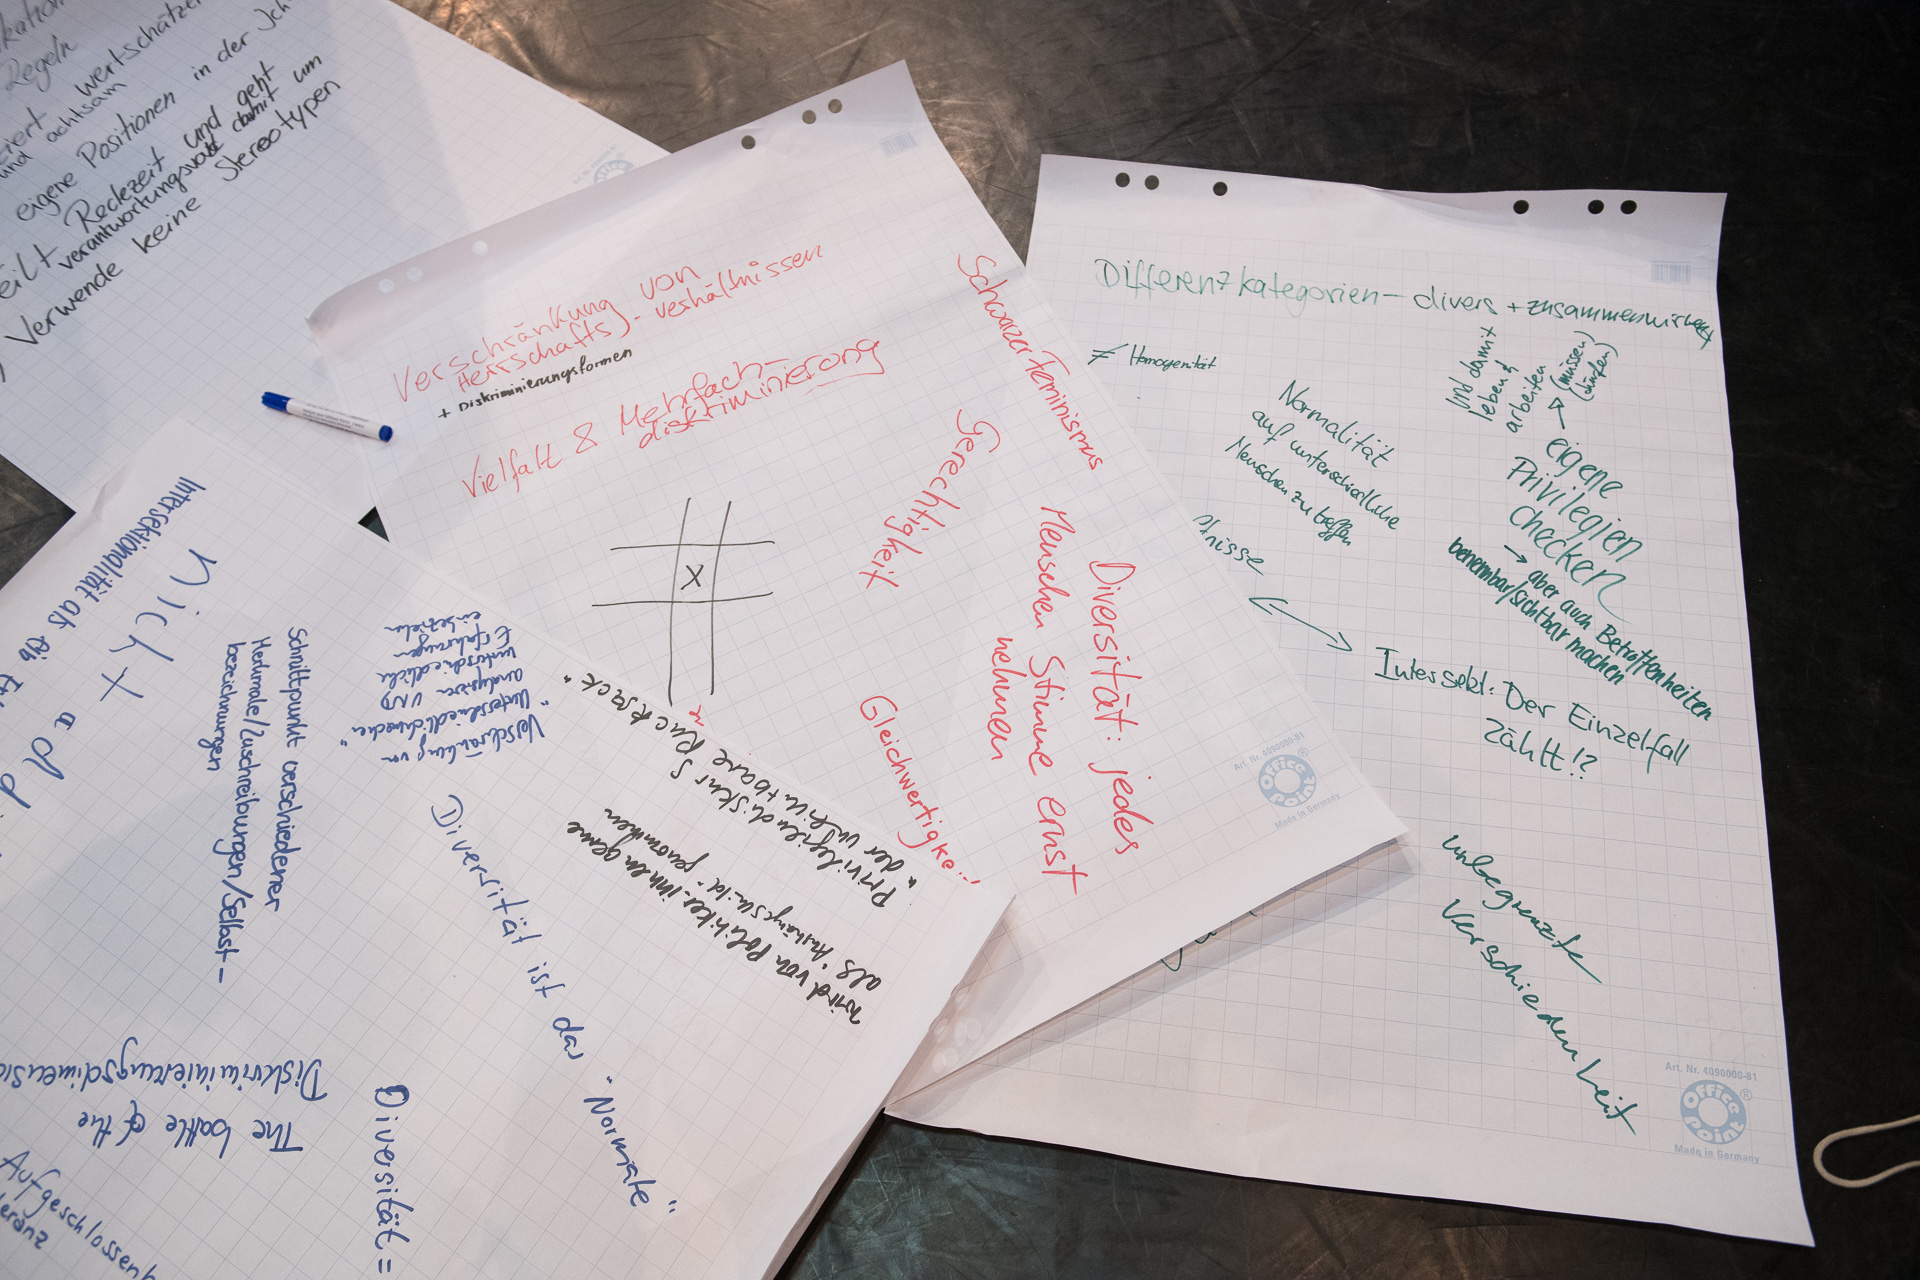 Regeln
wertschätzen
und achtsam
eigene Positionen in der Ich
eilt Redezeit und geht
verantwortungsvoll damit um
Verwende keine Stereotypen
Verschränkung von
Herrschafts)-verhältnissen
+ Diskriminierungsformen
Vielfalt & Mehrfach-
diskriminierung
Schwarzer Feminismus
Gerechtigkeit
X
Diversität: jedes
Menschen Stimme ernst
nehmen
Gleichwertigke...
Art. Nr. 4090000-81
Office Point
®
Made in Germany
Differenzkategorien – divers + zusammenwirkend
≠ Homogenität
Normalität
auf unterschiedliche
Menschen zu treffen
und damit
leben &
arbeiten
(müssen)
(dürfen)
eigene
Privilegien
checken
→ aber auch Betroffenheiten
benennbar/sichtbar machen
Intersekt: Der Einzelfall
zählt!?
unbegrenzte
Verschiedenheit
Art. Nr. 4090000-81
Office Point
®
Made in Germany
Intersektionalität als
Nicht
Schnittpunkt verschiedener
Merkmale/Zuschreibungen/Selbst-
bezeichnungen
Verschränkung von
"Unterschiedlichmacher"
analysieren UND
unterschiedliche
Erfahrungen
einbeziehen
Privilegiendiskurs
"der unsichtbare Rucksack"
wird von Politiker:innen gerne
als "Aushängeschild" genommen
Diversität ist das "Normale"
The battle of the
Diskriminierungsdimensio
Diversität =
Aufgeschlossenh